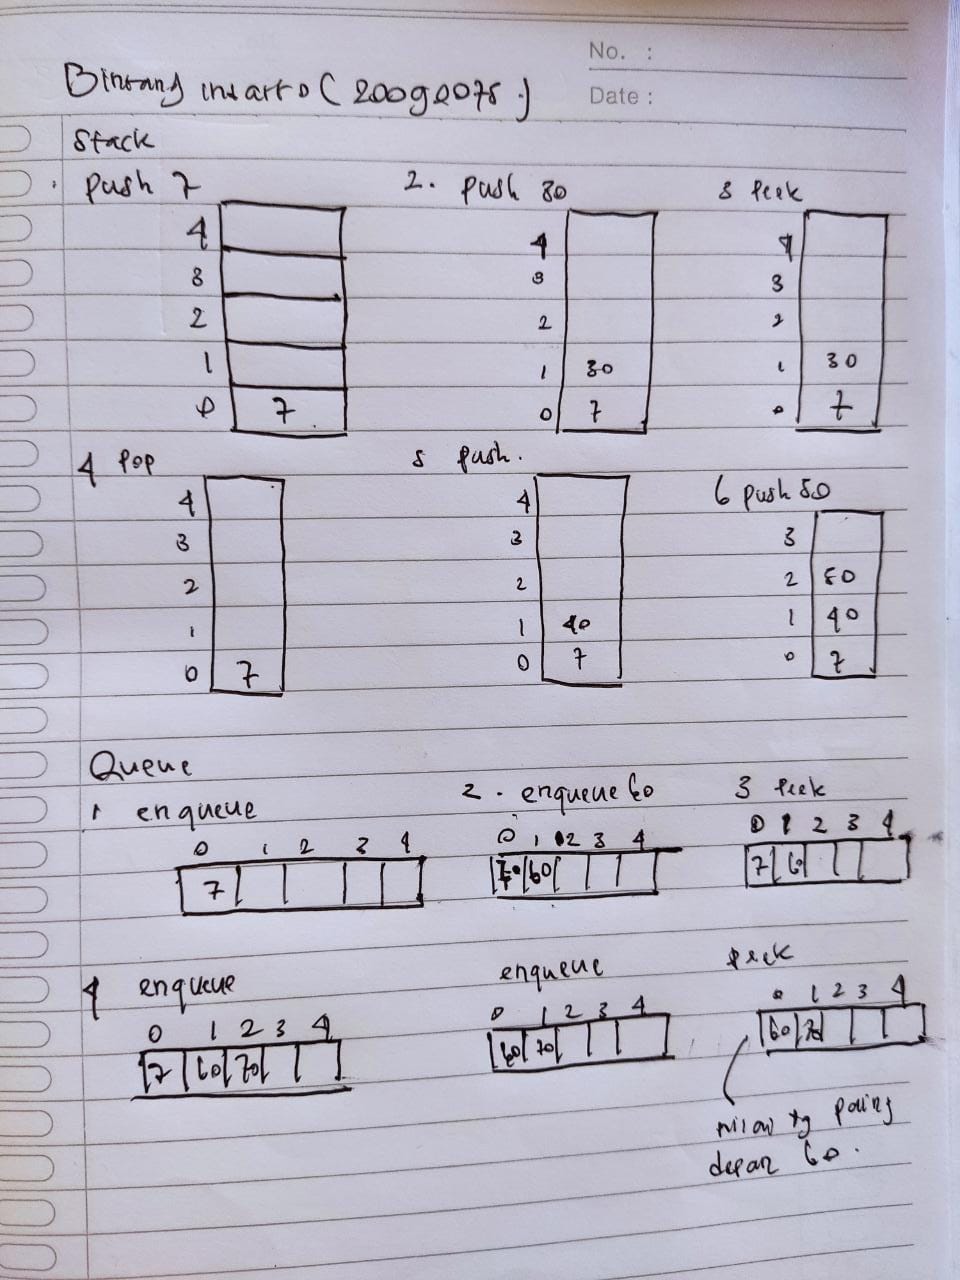 No. :
Date :
Bintang (2009207 .)
Stack
. push 7
4
3
2
1
0 7
2. push 30
4
3
2
1 30
0 7
3 Peek
4
3
2
1 30
0 7
4 Pop
4
3
2
1
0 7
5 push.
4
3
2
1 40
0 7
6 push 50
3
2 50
1 40
0 7
Queue
1 enqueue
0 1 2 3 4
7
2. enqueue 60
0 1 2 3 4
7 60
3 Peek
0 1 2 3 4
7 60
4 enqueue
0 1 2 3 4
7 60 70
enqueue
0 1 2 3 4
60 70
Peek
0 1 2 3 4
60 70
nilai yg paling
depan 60.